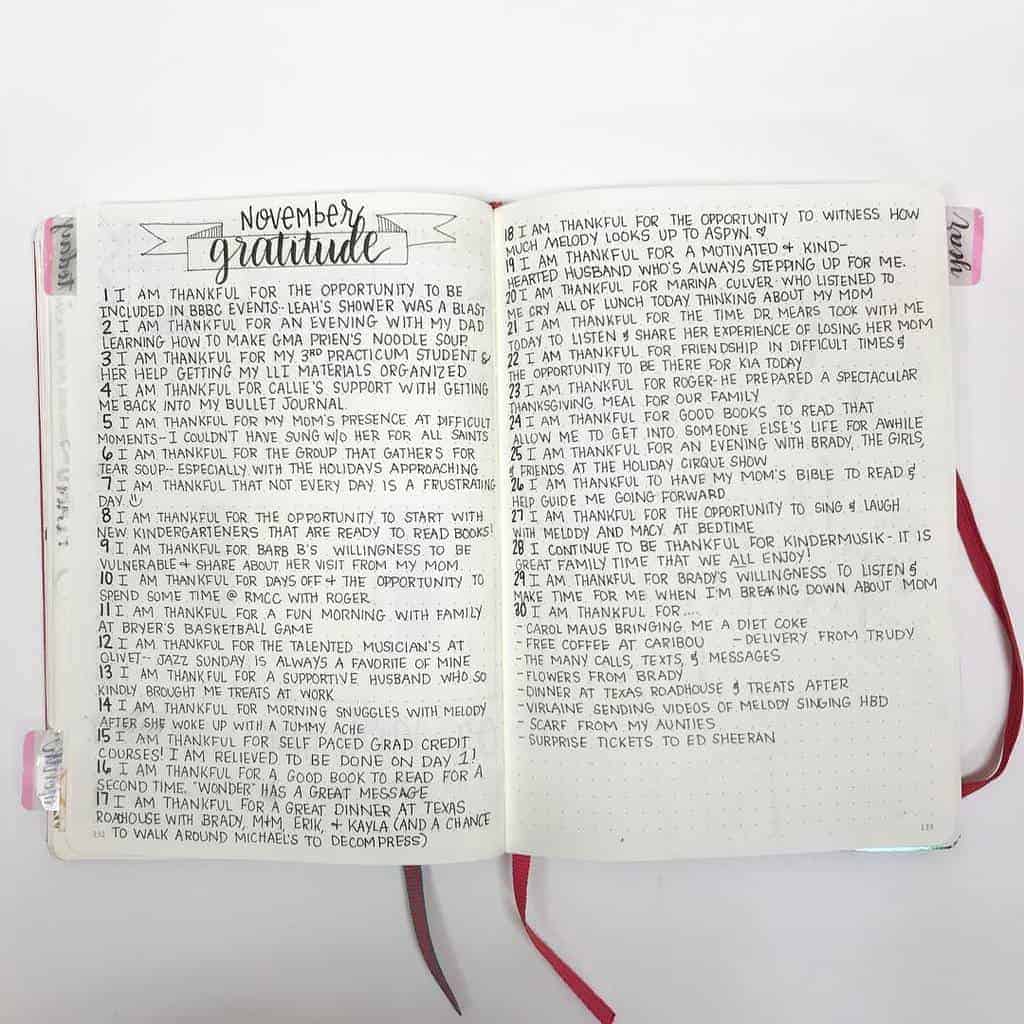 NOVEMBER
gratitude
1 I AM THANKFUL FOR THE OPPORTUNITY TO BE
INCLUDED IN BBBC EVENTS-- LEAH'S SHOWER WAS A BLAST
2 I AM THANKFUL FOR AN EVENING WITH MY DAD
LEARNING HOW TO MAKE GMA PRIEN'S NOODLE SOUP
3 I AM THANKFUL FOR MY 3RD PRACTICUM STUDENT &
HER HELP GETTING MY LLI MATERIALS ORGANIZED
4 I AM THANKFUL FOR CALLIE'S SUPPORT WITH GETTING
ME BACK INTO MY BULLET JOURNAL.
5 I AM THANKFUL FOR MY MOM'S PRESENCE AT DIFFICULT
MOMENTS-I COULDN'T HAVE SUNG W/O HER FOR ALL SAINTS
6 I AM THANKFUL FOR THE GROUP THAT GATHERS FOR
TEAR SOUP-- ESPECIALLY WITH THE HOLIDAYS APPROACHING
7 I AM THANKFUL THAT NOT EVERY DAY IS A FRUSTRATING
DAY. ☺
8 I AM THANKFUL FOR THE OPPORTUNITY TO START WITH
NEW KINDERGARTENERS THAT ARE READY TO READ BOOKS!
9 I AM THANKFUL FOR BARB B'S WILLINGNESS TO BE
VULNERABLE + SHARE ABOUT HER VISIT FROM MY MOM.
10 I AM THANKFUL FOR DAYS OFF + THE OPPORTUNITY TO
SPEND SOME TIME @ RMCC WITH ROGER
11 I AM THANKFUL FOR A FUN MORNING WITH FAMILY
AT BRYER'S BASKETBALL GAME
12 I AM THANKFUL FOR THE TALENTED MUSICIAN'S AT
OLIVET-- JAZZ SUNDAY IS ALWAYS A FAVORITE OF MINE
13 I AM THANKFUL FOR A SUPPORTIVE HUSBAND WHO SO
KINDLY BROUGHT ME TREATS AT WORK
14 I AM THANKFUL FOR MORNING SNUGGLES WITH MELODY
AFTER SHE WOKE UP WITH A TUMMY ACHE
15 I AM THANKFUL FOR SELF PACED GRAD CREDIT
COURSES! I AM RELIEVED TO BE DONE ON DAY 1!
16 I AM THANKFUL FOR A GOOD BOOK TO READ FOR A
SECOND TIME. "WONDER" HAS A GREAT MESSAGE
17 I AM THANKFUL FOR A GREAT DINNER AT TEXAS
ROADHOUSE WITH BRADY, M+M, ERIK, + KAYLA (AND A CHANCE
TO WALK AROUND MICHAEL'S TO DECOMPRESS)
132
18 I AM THANKFUL FOR THE OPPORTUNITY TO WITNESS HOW
MUCH MELODY LOOKS UP TO ASPYN. ♡
19 I AM THANKFUL FOR A MOTIVATED + KIND-
HEARTED HUSBAND WHO'S ALWAYS STEPPING UP FOR ME.
20 I AM THANKFUL FOR MARINA CULVER WHO LISTENED TO
ME CRY ALL OF LUNCH TODAY THINKING ABOUT MY MOM
21 I AM THANKFUL FOR THE TIME DR. MEARS TOOK WITH ME
TODAY TO LISTEN & SHARE HER EXPERIENCE OF LOSING HER MOM
22 I AM THANKFUL FOR FRIENDSHIP IN DIFFICULT TIMES &
THE OPPORTUNITY TO BE THERE FOR KIA TODAY
23 I AM THANKFUL FOR ROGER-HE PREPARED A SPECTACULAR
THANKSGIVING MEAL FOR OUR FAMILY
24 I AM THANKFUL FOR GOOD BOOKS TO READ THAT
ALLOW ME TO GET INTO SOMEONE ELSE'S LIFE FOR AWHILE
25 I AM THANKFUL FOR AN EVENING WITH BRADY, THE GIRLS,
& FRIENDS AT THE HOLIDAY CIRQUE SHOW
26 I AM THANKFUL TO HAVE MY MOM'S BIBLE TO READ &
HELP GUIDE ME GOING FORWARD.
27 I AM THANKFUL FOR THE OPPORTUNITY TO SING & LAUGH
WITH MELODY AND MACY AT BEDTIME
28 I CONTINUE TO BE THANKFUL FOR KINDERMUSIK-IT IS
GREAT FAMILY TIME THAT WE ALL ENJOY!
29 I AM THANKFUL FOR BRADY'S WILLINGNESS TO LISTEN &
MAKE TIME FOR ME WHEN I'M BREAKING DOWN ABOUT MOM
30 I AM THANKFUL FOR....
-CAROL MAUS BRINGING ME A DIET COKE
-FREE COFFEE AT CARIBOU -DELIVERY FROM TRUDY
-THE MANY CALLS, TEXTS, & MESSAGES
-FLOWERS FROM BRADY
-DINNER AT TEXAS ROADHOUSE & TREATS AFTER
-VIRLAINE SENDING VIDEOS OF MELODY SINGING HBD
-SCARF FROM MY AUNTIES
-SURPRISE TICKETS TO ED SHEERAN
133